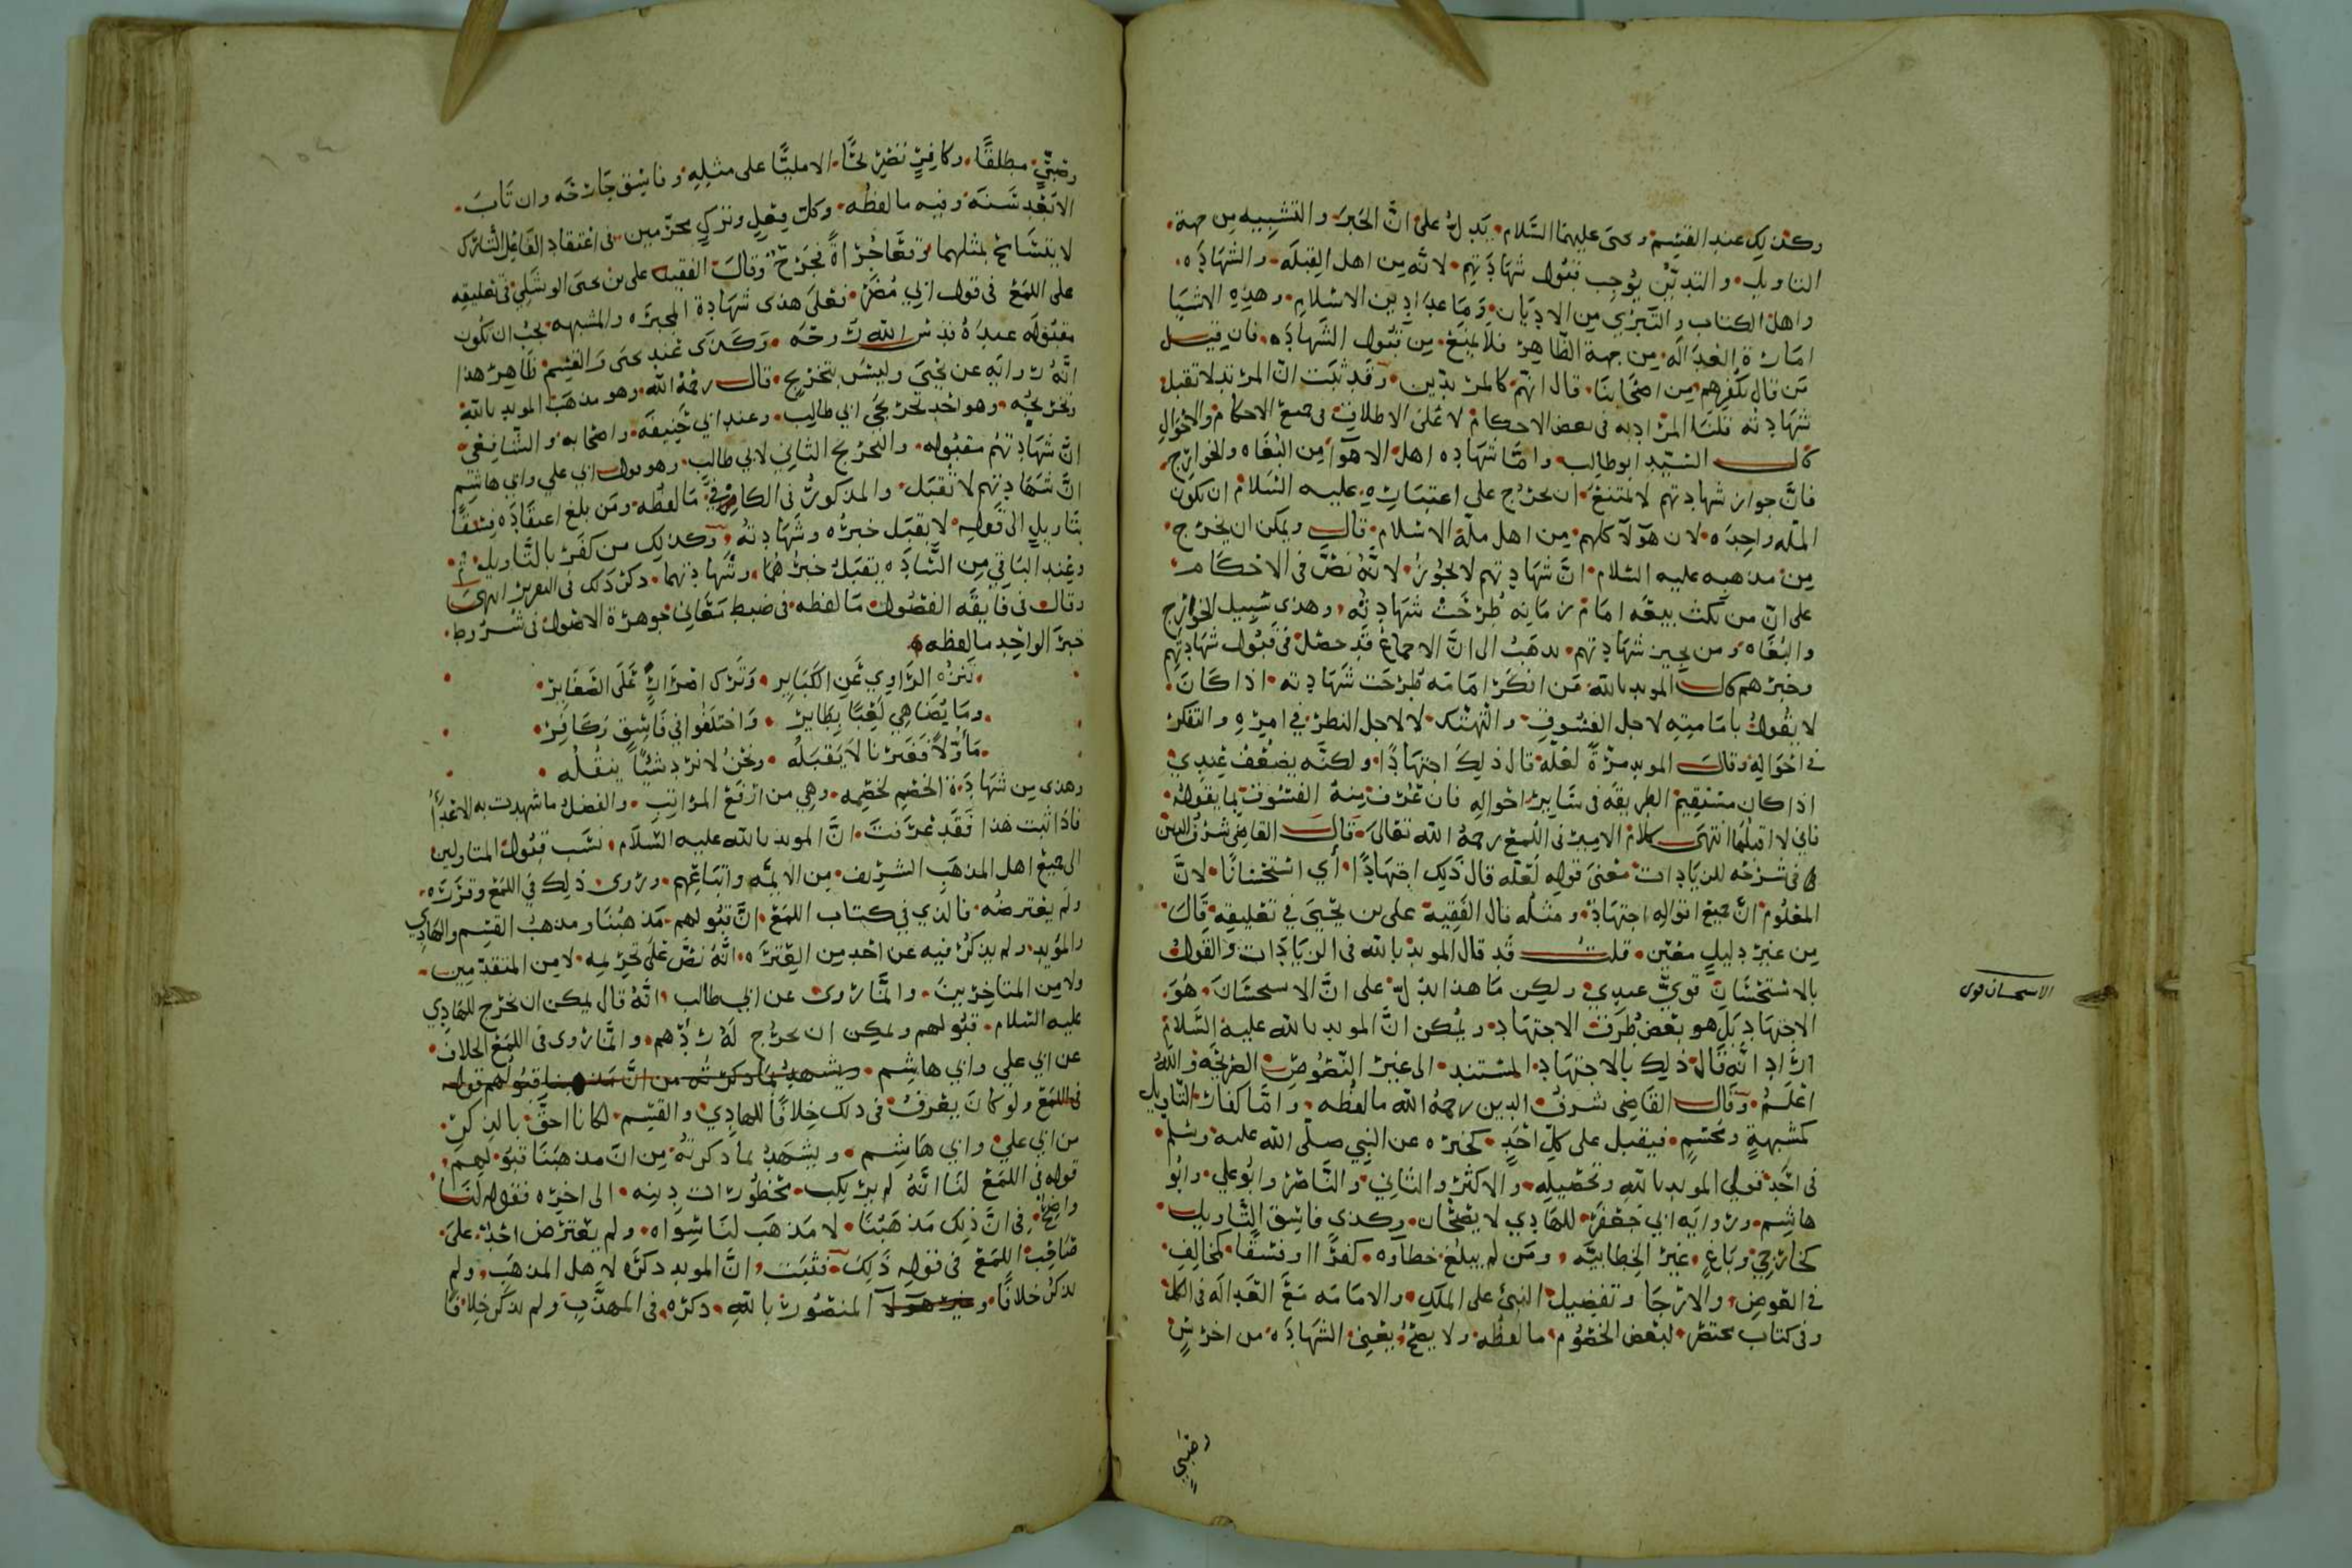 وكذلك عند القسم ويحيى عليهما السلام يدل على ان الخبر والتشبيه من جهة
التاويل والتدين يوجب قبول شهادتهم لانه من اهل القبلة والشهاده
واهل الكتاب والتبري من الاديان وما عدا دين الاسلام وهذه الاشيا
امارة العداله من جهة الظاهر فلا يمنع من قبول الشهاده فان قيل
من قال بكفرهم من اصحابنا قال انهم كالمرتدين وقد ثبت ان المرتد لا تقبل
شهادته قلنا المراد به في بعض الاحكام لا على الاطلاق في جميع الاحكام والاحوال
قال السيد ابو طالب واما شهاده اهل الاهوآ من البغاه والخوارج
فان جواز شهادتهم لا يمتنع ان يخرج على اعتباره عليه السلام ان تكون
المله واحده لان هولآ كلهم من اهل ملة الاسلام قال ويمكن ان يخرج
من مذهبه عليه السلام ان شهادتهم لا تجوز لانه نص في الاحكام
على ان من نكث بيعه امام زمانه طرحت شهادته وهذي سبيل الخوارج
والبغاه ومن يجيز شهادتهم يذهب الى ان الاجماع قد حصل في قبول شهادتهم
وخبرهم قال المويد بالله من انكر امامه طرحت شهادته اذا كان
لا يقول بامامته لاجل الفسوق والتهتك لا لاجل النظر في امره والتفكر
في احواله وقال المويد مرة لعله قال ذلك اجتهادًا ولكنه يضعف عندي
اذا كان مستقيم الطريقه في ساير احواله فان عرف منه الفسوق بما يقوله
فاني لا اقبلها انتهى كلام الامير في اللمع رحمه الله تعالى قال القاضي شرف الدين
في شرحه للزيادات معنى قوله لعله قال ذلك اجتهادًا أي استحسانًا لان
المعلوم ان جميع اقواله اجتهاد ومثله قال الفقيه علي بن يحيى في تعليقه قال
من غير دليل معين قلت قد قال المويد بالله في الزيادات والقول
بالاستحسان قوي عندي ولكن ما هذا يدل على ان الاستحسان هو
الاستحسان قوي
الاجتهاد بل هو بعض طرق الاجتهاد ويمكن ان المويد بالله عليه السلام
اراد انه قال ذلك بالاجتهاد المستند الى غير النصوص الصريحه والله
اعلم وقال القاضي شرف الدين رحمه الله ما لفظه واما كفار التاويل
كمشبهة ومجسم فيقبل على كل احد كخبره عن النبي صلى الله عليه وسلم
في احد قولي المويد بالله وتحصيله والاكثر والثاني والناصر وابو علي وابو
هاشم ورواية ابي جعفر للهادي لا يصحان وكذي فاسق التاويل
كخارجي وباغ غير الخطابيه ومن لم يبلغ خطآوه كفرًا او فسقًا كخالف
في العوض والارجا وتفضيل النبي على الملك والامامه مع العداله في الكل
وفي كتاب مختصر لبعض الخصوم ما لفظه ولا يصح يعني الشهاده من اخرس
وصبي
وصبي مطلقًا وكافر نصرحًا الا مليًا على مثله وفاسق جارحه وان تاب
الا بعد سنه وفيه ما لفظه وكل فعل وترك محرمين في اعتقاد الفاعل التارك
لا يتسامح بمثلهما وتعًا جراة فجرح وقال الفقيه علي بن يحيى الوشلي في تعليقه
على اللمع في قول ابي مضر فعلى هذى شهادة المجبره والمشبهه يجب ان تكون
مقبوله عنده قدس الله روحه وكذى عند يحيى والقسم ظاهر هذا
انه رواية عن يحيى وليس بتخريج قال رحمه الله وهو مذهب المويد بالله
وتخريجه وهو احد تخريجي ابي طالب وعند ابي حنيفه واصحابه والشافعي
ان شهادتهم مقبوله والتخريج الثاني لابي طالب وهو قول ابي علي وابي هاشم
ان شهادتهم لا تقبل والمذكور في الكافي ما لفظه ومن بلغ اعتقاده فسقًا
بتاويل الى قوله لا يقبل خبره وشهادته وكذلك من كفر بالتاويل
وعند الباقي من الساده يقبل خبرهما وشهادتهما ذكر ذلك في التقرير انتهى
وقال في فايقه الفصول ما لفظه في ضبط معاني جوهرة الاصول في شروط
خبر الواحد ما لفظه
تنزه الراوي عن الكباير وترك اصرار على الصغاير
وما يضاهي لعبًا بطاير واختلفوا في فاسق وكافر
مأولًا فغيرنا لا يقبله ونحن لا نرد شيًا ينقله
وهذى من شهادة الخصم لخصمه وهي من ارفع المراتب والفضل ما شهدت به الاعدآ
فاذا ثبت هذا فقد عرفت ان المويد بالله عليه السلام نسب قبول المتاولين
الى جميع اهل المذهب الشريف من الايمه واتباعهم وروى ذلك في اللمع وقرره
ولم يعترضه فالذي في كتاب اللمع ان قبولهم مذهبنا ومذهب القسم والهادي
والمؤيد ولم يذكر فيه عن احد من العتره انه نص على تحريمه لا من المتقدمين
ولا من المتاخرين وانما روى عن ابي طالب انه قال يمكن ان يخرج للهادي
عليه السلام قبولهم ويمكن ان يخرج له ردهم وانما روى في اللمع الخلاف
عن ابي علي وابي هاشم ويشهد بما ذكرته من ان مذهبنا قبولهم قوله
في اللمع ولو كان يعرف في ذلك خلافًا للهادي والقسم لكانا احق بالذكر
من ابي علي وابي هاشم ويشهد بما ذكرته من ان مذهبنا قبولهم
قوله في اللمع لنا انه لم يرتكب محظورات دينه الى اخره فقوله لنا
واضح في ان ذلك مذهبنا لا مذهب لنا سواه ولم يعترض احد على
صاحب اللمع في قوله ذلك فثبت ان المويد ذكره لاهل المذهب ولم
يذكر خلافًا وغير هولآ المنصور بالله ذكره في المهذب ولم يذكر خلافًا